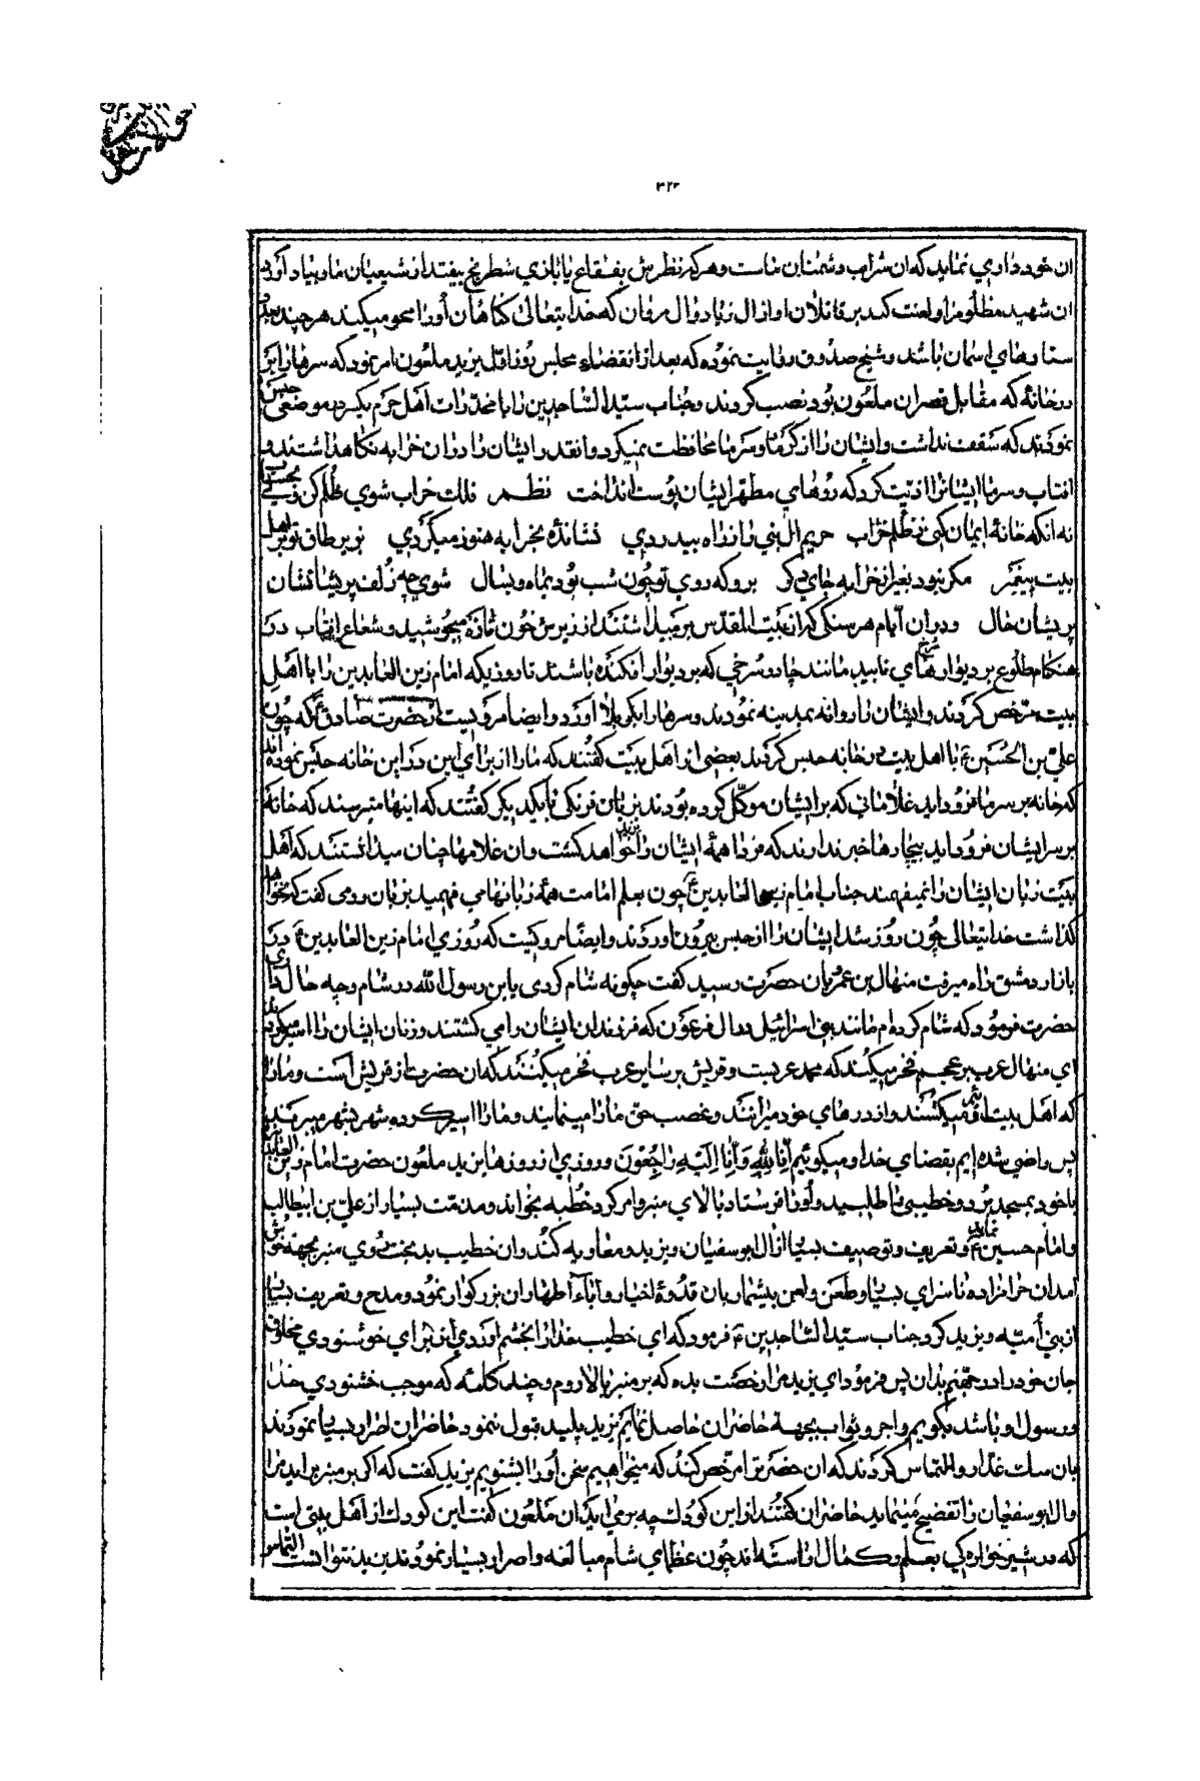 ۳۲۳
ان خودداری نماید که ان شراب دشمنان ماست و هر که نظرش بفقاع یا بازی شطرنج بیفتد از شیعیان ما و بیاد آورد
ان شهید مظلوم را و لعنت کند بر قاتلان او از ال زیاد و ال مروان که خدایتعالی گناهان او را محو میکند هر چند بعدد
ستارهای اسمان باشد و شیخ صدوق روایت نموده که بعد از انقضاء مجلس روز اول یزید ملعون امر نمود که سرها را بر
در خانهٔ که مقابل قصر ان ملعون بود نصب کردند و جناب سید الساجدین را با مخدرات اهل حرم یکسر در موضعی حبس
نمودند که سقف نداشت و ایشان را از گرما و سرما محافظت نمیکرد و انقدر ایشان را در ان خرابه نگاهداشتند و
افتاب و سرما ایشانرا اذیت کرد که روهای مطهر ایشان پوست انداخت نظم فلک خراب شوی ظلم کن
نه انکه خانهٔ ایمان کنی ز ظلم خراب حریم ال نبی را ز راه بیدردی نشاندهٔ بخرابه هنوز میگردی
بیت پیغمبر مگر نبود بغیر از خرابه جای دگر برو که روی تو چون شب بود بماه و بسال شوی چه زلف پریشانشان
پریشان حال و در ان ایام هر سنگی که از بیت المقدس بر میداشتند از زیرش خون تازه میجوشید و شعاع افتاب در
هنگام طلوع بر دیوارهای سرخ تابید مانند چادر سرخی که بر دیوار افکنده باشند تا روزیکه امام زین العابدین را با اهل
بیت مرخص کردند و ایشان را روانه بمدینه نمودند و سرها را بکربلا آورد و ایضا مرویست از حضرت صادق ع که چون
علی بن الحسین ع با اهل بیت در خانه حبس کردند بعضی از اهل بیت گفتند که ما را از برای این در این خانه حبس نموده اند
که خانه بر سر ما فرود اید غلامانی که بر ایشان موکل کرده بودند بزبان فرنگی با یکدیگر گفتند که اینها میترسند که خانه
بر سر ایشان فرود اید بیچارها خبر ندارند که فردا همهٔ ایشان را یزید خواهد کشت و ان غلامها چنان میدانستند که اهل
بیت زبان ایشان را نمیفهمند جناب امام زین العابدین ع چون بعلم امامت همهٔ زبانها می فهمید بزبان رومی گفت که نخواهد
گذاشت خدایتعالی چون روز شد ایشان را از حبس بیرون اوردند و ایضا مرویست که روزی امام زین العابدین ع در
بازار دمشق راه میرفت منهال بن عمر بان حضرت رسید گفت چگونه شام کردی یا بن رسول الله در شام و چه حال داری
حضرت فرمود که شام کرده ام مانند بنی اسرائیل در ال فرعون که فرزندان ایشان را می کشتند و زنان ایشان را اسیر میکردند
ای منهال عرب بر عجم فخر میکند که محمد عربیست و قریش بر سایر عرب فخر میکنند که ان حضرت از قریش است و ما را
که اهل بیت اوئیم میکشند و از درهای خود میرانند و غصب حق ما را مینمایند و ما را اسیر کرده شهر بشهر میبرند
پس راضی شده ایم بقضای خدا و میگوئیم انا لله و انا الیه راجعون و روزی از روزها یزید ملعون حضرت امام زین العابدین را
با خود بمسجد برد و خطیبی را طلبید و او را فرستاد ببالای منبر و امر کرد خطبه بخواند و مذمت بسیار از علی بن ابیطالب
و امام حسین ع نماید و تعریف و توصیف بسیار از ال ابو سفیان و یزید و معاویه کند و ان خطیب بدبخت روی منبر بجهة خوش
امد ان حرامزاده ناسزای بسیار و طعن و لعن بیشمار بان قدوهٔ اخیار و اباء اطهار ان بزرگوار نمود و مدح و تعریف بسیار
از بنی امیه و یزید کرد جناب سید الساجدین ع فرمود که ای خطیب خدا را بخشم اوردی از برای خوشنودی مخلوق
جان خود را در جهنم بدان پس فرمود ای یزید مرا رخصت بده که بر منبر بالا روم و چند کلمهٔ که موجب خشنودی خدا
و رسول او باشد بگویم و اجر و ثواب بجهة حاضران حاصل نمایم یزید پلید قبول ننمود حاضران اصرار بسیار نمودند
بان سگ غدار و التماس کردند که ان حضرت را مرخص کند که میخواهیم سخن او را بشنویم یزید گفت که اگر بر منبر براید مرا
و ال ابو سفیان را تفضیح مینماید حاضران گفتند از این کودک چه برمی اید ان ملعون گفت این کودک از اهل بیتی است
که در شیرخوارگی بعلم و کمال اراسته اند چون عظمای شام مبالغه و اصرار بسیار نمودند یزید نتوانست التماس